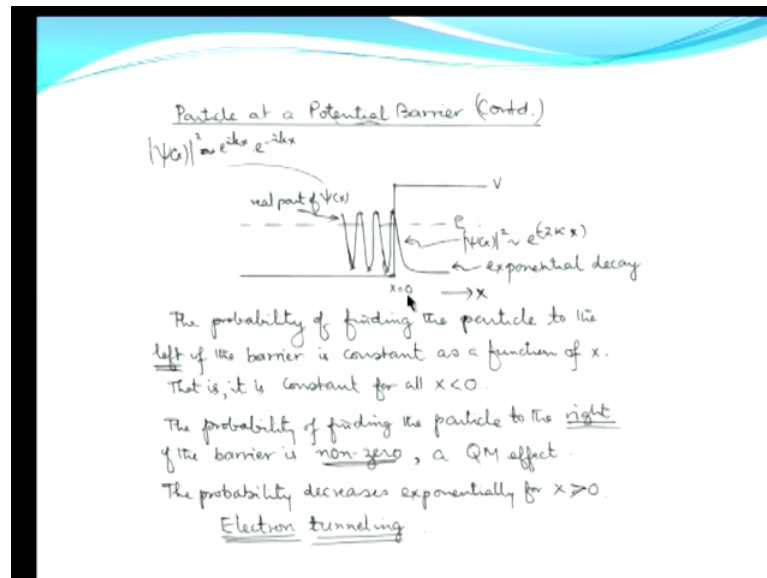 Particle at a Potential Barrier (Contd.)
|Ψ(x)|² ~ e^{ikx} . e^{-ikx}
V
real part of Ψ(x)
E
|Ψ(x)|² ~ e^{(-2κx)}
exponential decay
x=0
→ x
The probability of finding the particle to the
left of the barrier is constant as a function of x.
That is, it is constant for all x<0.
The probability of finding the particle to the right
of the barrier is non-zero, a QM effect.
The probability decreases exponentially for x>0.
Electron tunneling